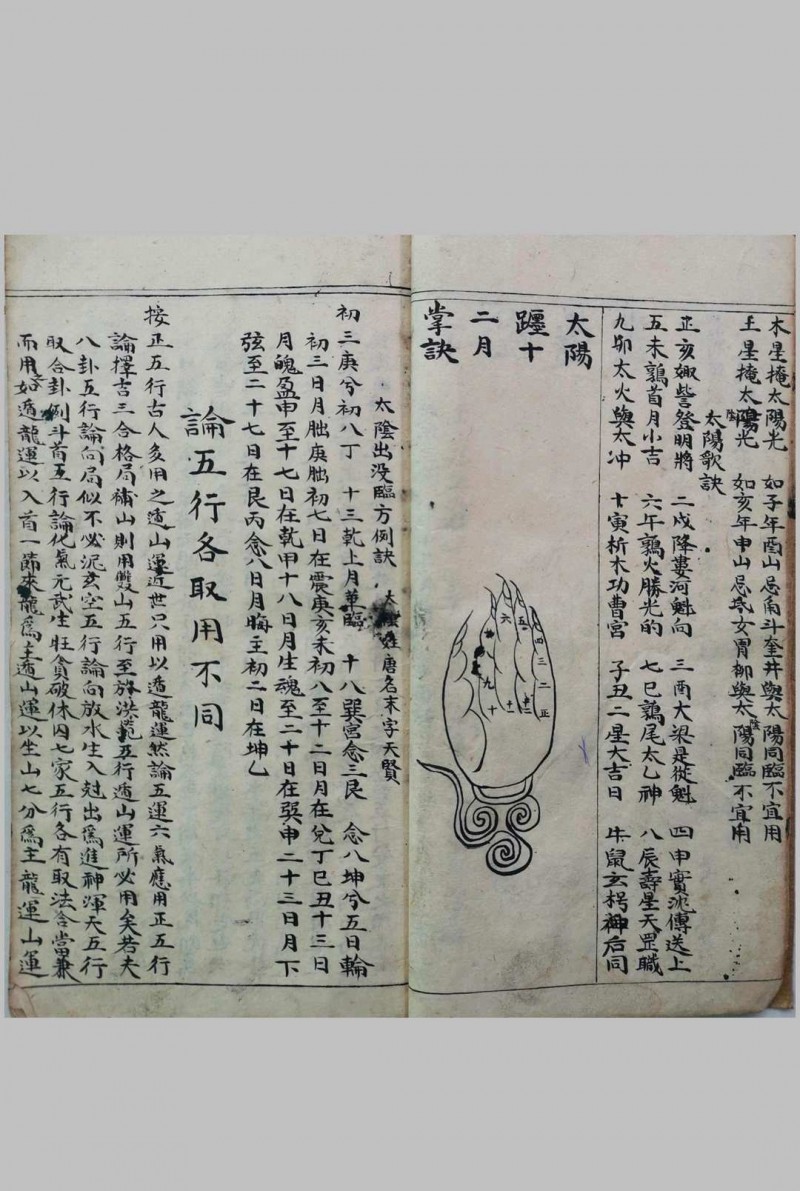 木星掩太陽光　如子年酉山忌角斗奎井與太陽同臨不宜用
土星掩太陽光　如亥年申山忌氐女胃柳與太陽同臨不宜用
太陽歌訣
正亥娵訾登明將　二戌降婁河魁向　三酉大梁是從魁　四申實沈傳送上
五未鶉首月小吉　六午鶉火勝光的　七巳鶉尾太乙神　八辰壽星天罡職
九卯大火與太冲　十寅析木功曹宮　子丑二星大吉日　牛鼠玄枵神后同
太陽
躔十
二月
掌訣
六 五 四 三 二 正
九 十 十一 十二
太陰出没臨方例訣　太陰姓唐名末字天賢
初三庚兮初八丁　十三乾上月華臨　十八巽宮念三艮　念八坤兮五日輪
初三日月朏庚朏初七日在震庚亥未初八至十二日月在兌丁巳丑十三日
月魄盈甲至十七日在乾甲十八日月生魂至二十日在巽申二十三日月下
弦至二十七日在艮丙念八日月晦主初二日在坤乙
論五行各取用不同
按正五行古人多用之遁山運近世只用以遁龍運然論五運六氣應用正五行
論擇吉三合格局補山則用雙山五行至於洪範五行遁山運所必用矣若夫
八卦五行論向局似不必泥玄空五行論向放水生入尅出爲進神渾天五行
取合卦例斗首五行論化氣元武生旺貪破休囚七家五行各有取法合當兼
而用如遁龍運以入首一節來龍爲主遁山運以坐山七分爲主龍運山運